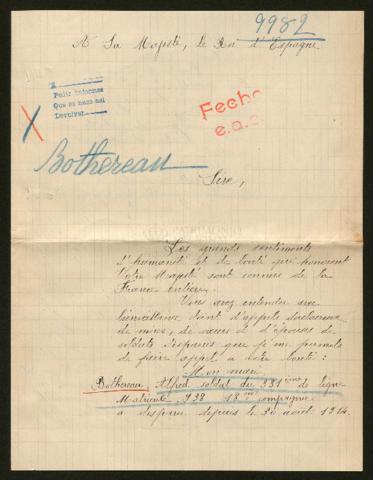 9982
A Sa Majesté, le Roi d'Espagne
Que se haga así
Devolver
Fecho
e.a.
Bothereau
Sire,
Les grands sentiments
d'humanité et de bonté qui
Votre Majesté sont connus de la
France entière.
Vous avez entendu avec
bienveillance tant d'appels douloureux
de mères, de sœurs et d'épouses de
soldats disparus que je me permets
de faire appel à votre bonté :
Mon mari
Bothereau Alfred soldat du 331ème de ligne
Matricule 938 18ème compagnie
a disparu depuis le 30 août 1914.